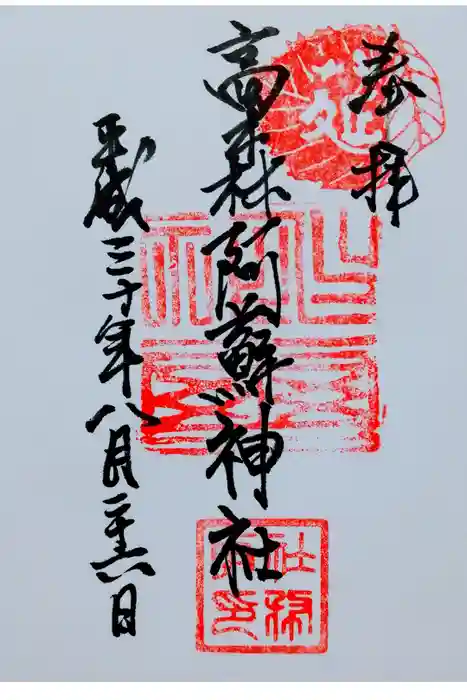 奉拝
高森阿蘇神社
平成三十年八月二十六日
社務
之印